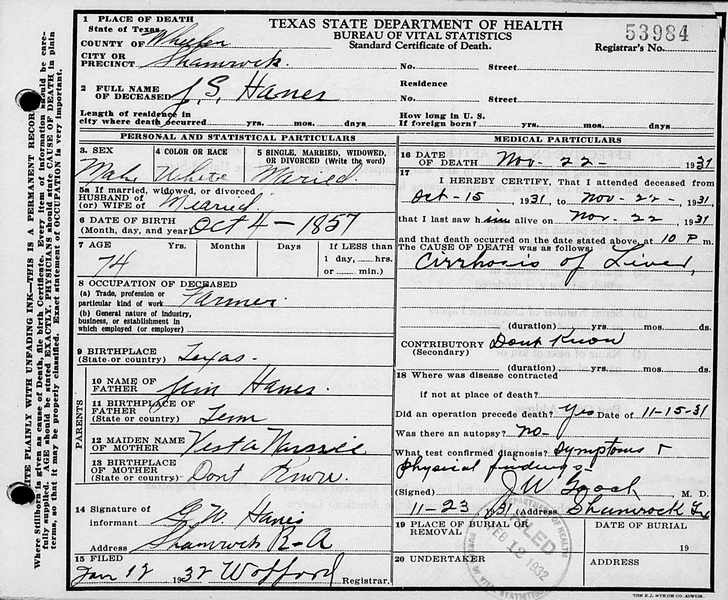 TEXAS STATE DEPARTMENT OF HEALTH
BUREAU OF VITAL STATISTICS
Standard Certificate of Death.
53984
Registrar's No.
1 PLACE OF DEATH
State of Texas
COUNTY OF Wheeler
CITY OR PRECINCT Shamrock. No. Street
2 FULL NAME OF DECEASED J. S. Hanes Residence No. Street
Length of residence in city where death occurred yrs. mos. days. How long in U. S. If foreign born? yrs. mos. days
PERSONAL AND STATISTICAL PARTICULARS
3. SEX 4 COLOR OR RACE 5 SINGLE, MARRIED, WIDOWED, OR DIVORCED (Write the word)
Male White Maried.
5a If married, widowed, or divorced
HUSBAND OF (or) WIFE OF
6 DATE OF BIRTH (Month, day, and year) Oct 4 - 1857
7 AGE Yrs. Months Days If LESS than 1 day, hrs. or min.
74
8 OCCUPATION OF DECEASED
(a) Trade, profession or particular kind of work Farmer
(b) General nature of industry, business, or establishment in which employed (or employer)
9 BIRTHPLACE (State or country) Texas.
PARENTS
10 NAME OF FATHER Jim Hanes.
11 BIRTHPLACE OF FATHER (State or country) Tenn
12 MAIDEN NAME OF MOTHER Vesta
13 BIRTHPLACE OF MOTHER (State or country) Dont Know.
14 Signature of informant G. W. Hanes
Address Shamrock R-A
15 FILED Jan 12 1932 Wofford Registrar.
MEDICAL PARTICULARS
16 DATE OF DEATH Nov - 22 - 1931
17 I HEREBY CERTIFY, That I attended deceased from
Oct-15 1931 to Nov-22- 1931
that I last saw him alive on Nov. 22 1931
and that death occurred on the date stated above, at 10 P m.
The CAUSE OF DEATH was as follows:
Cirrhosis of Liver,
(duration) yrs. mos. ds.
CONTRIBUTORY (Secondary) Dont Know
(duration) yrs. mos. ds.
18 Where was disease contracted
if not at place of death?
Did an operation precede death? Yes Date of 11-15-31
Was there an autopsy? no-
What test confirmed diagnosis? Symptoms +
Physical findings
(Signed) J W Gooch M. D.
11-23 1931 (Address) Shamrock Tex
19 PLACE OF BURIAL OR REMOVAL DATE OF BURIAL
19
20 UNDERTAKER ADDRESS
DEPARTMENT OF HEALTH
FILED
FEB 12 1932
VITAL STATISTICS
WRITE PLAINLY WITH UNFADING INK—THIS IS A PERMANENT RECORD
Where Stillborn is given as cause of Death, file birth Certificate. Every item of information should be carefully supplied. AGE should be stated EXACTLY. PHYSICIANS should state CAUSE OF DEATH in plain terms, so that it may be properly classified. Exact statement of OCCUPATION is very important.